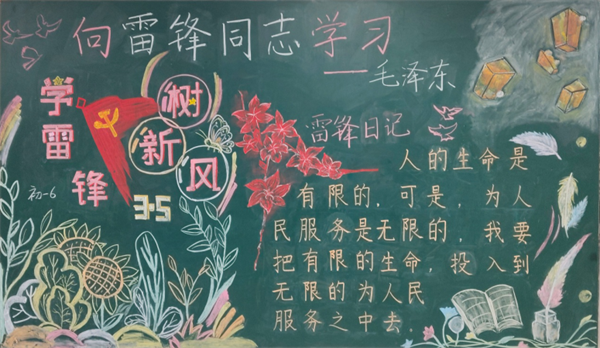 向雷锋同志学习
——毛泽东
学雷锋
树新风
3·5
初一6
雷锋日记
人的生命是
有限的，可是，为人
民服务是无限的，我要
把有限的生命，投入到
无限的为人民
服务之中去。